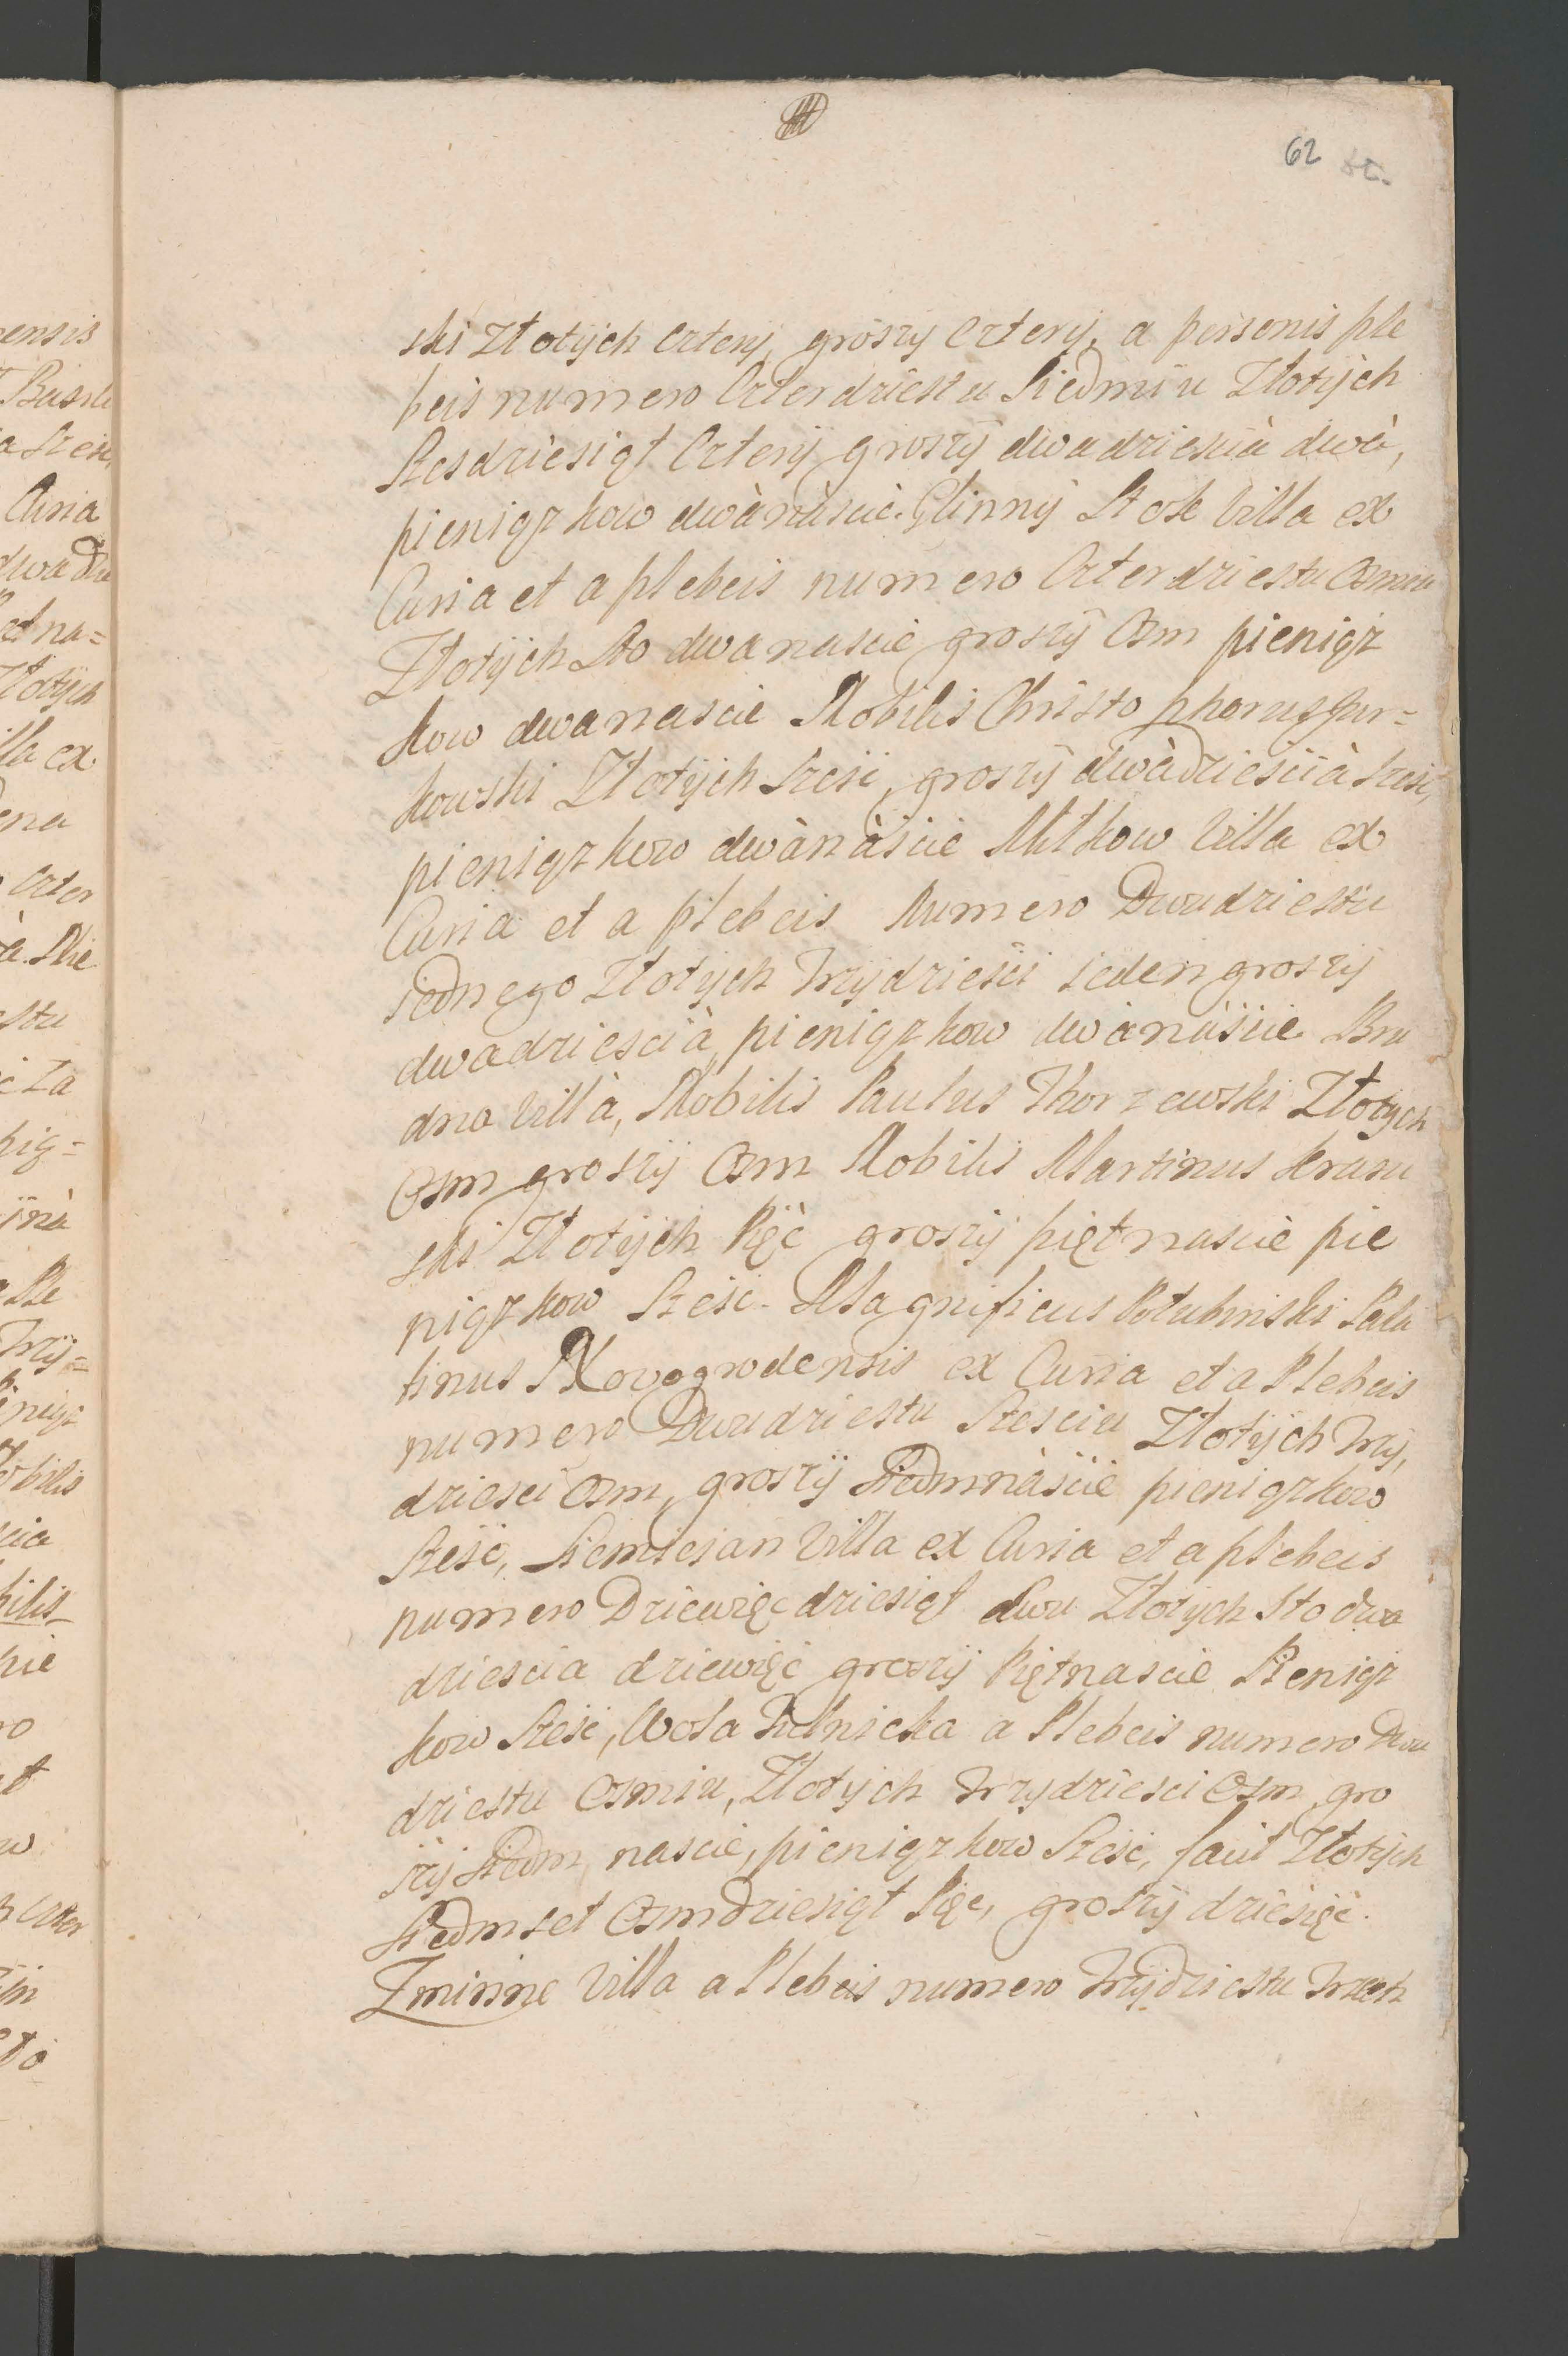 62
ski Złotÿch Czterÿ, groszÿ Czterÿ, a personis ple
beis numero Czterdziestu Siedmiu Złotÿch
Szesdziesiąt Czterÿ groszÿ dwadziescià dwà,
pieniązkow dwànàscie. Glinnÿ Stok Villa ex
Curia et a plebeis numero Czterdziestu Osmiu
Złotÿch Sto dwanascie groszÿ Osm pieniąz
kow dwanascie Nobilis Christophorus Gur=
kowski Złotÿch Szesć, groszÿ dwàdziesciià Szesć,
pieniązkow dwànàscie Mitkow Villa ex
Curia et a plebeis Numero Dwudziestu
iednego Złotÿch Trzÿdziesci ieden groszÿ
dwadziescià, pieniązkow dwànàscie Bru
dno Villà, Nobilis Paulus Thorzewski Złotych
Osm groszÿ Osm Nobilis Martinus Krasu
ski Złotÿch Pięć groszÿ piętnascie pie
niązkow Szesć. Magnificus Połubinski Pala
tinus Novogrodensis ex Curia et a Plebeis
numero Dwudziestu Szesciu Złotÿch Trzÿ,
dziesci Osm, groszÿ Siedmnàscie pieniązkow
Szesć, Siemiesian Villa ex Curia et a plebeis
numero Dziewięcdziesiąt dwu Złotych Sto dwa
dziescia dziewięć groszÿ Piętnascie Pieniąz
kow Szesć, Wola Tulnicka a Plebeis numero Dwu
dziestu Osmiu, Złotych trzydziesci Osm gro
szÿ Siedm nascie, pieniązkow Szesć, facit Złotÿch
Siedmset Osmdziesiąt Pięc, groszÿ dziesięć.
Zminne Villa a Plebeis numero Trzÿdziestu Trzech